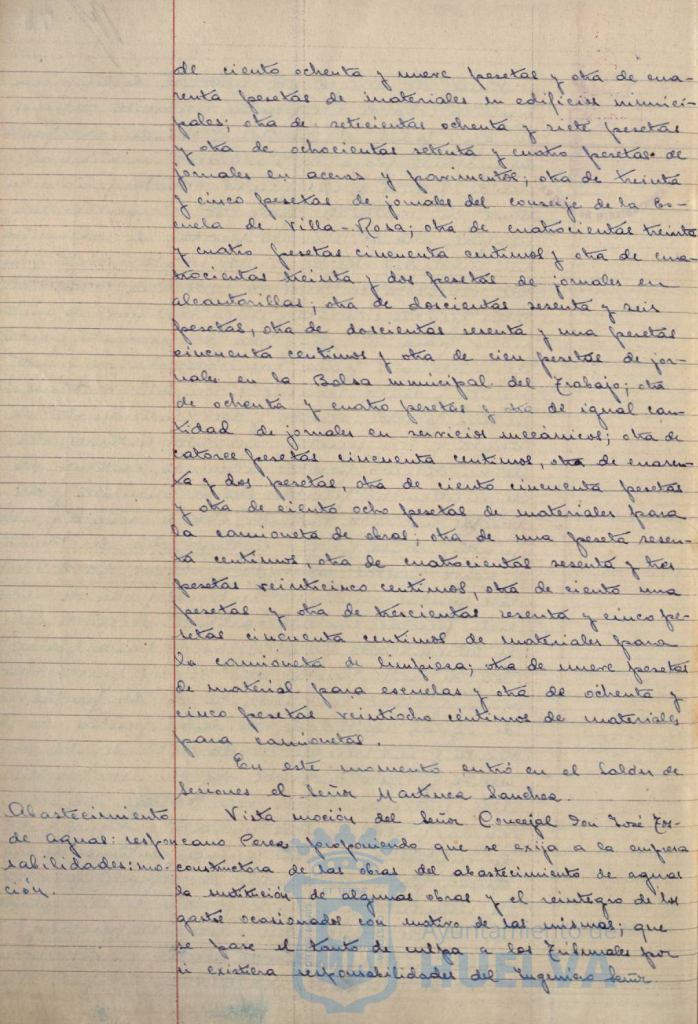 de ciento ochenta y nueve pesetas y otra de cua-
renta pesetas de materiales en edificios munici-
pales; otra de setecientas ochenta y siete pesetas
y otra de ochocientas setenta y cuatro pesetas de
jornales en aceras y pavimentos; otra de treinta
y cinco pesetas de jornales del conserje de la Es-
cuela de Villa-Rosa; otra de cuatrocientas treinta
y cuatro pesetas cincuenta centimos y otra de cua-
trocientas treinta y dos pesetas de jornales en
alcantarillas; otra de doscientas sesenta y seis
pesetas, otra de doscientas sesenta y una pesetas
cincuenta centimos y otra de cien pesetas de jor-
nales en la Bolsa municipal del Trabajo; otra
de ochenta y cuatro pesetas y otra de igual can-
tidad de jornales en servicios mecánicos; otra de
catorce pesetas cincuenta centimos, otra de cuaren-
ta y dos pesetas, otra de ciento cincuenta pesetas
y otra de ciento ocho pesetas de materiales para
la camioneta de obras; otra de una peseta sesen-
ta centimos, otra de cuatrocientas sesenta y tres
pesetas veinticinco centimos, otra de ciento una
pesetas y otra de trescientas sesenta y cinco pe-
setas cincuenta centimos de materiales para
la camioneta de limpieza; otra de nueve pesetas
de material para escuelas y otra de ochenta y
cinco pesetas veintiocho céntimos de materiales
para camionetas.
En este momento entró en el Salón de
Sesiones el Señor Martinez Sanchez.
Abastecimiento
de aguas: respon-
sabilidades: mo-
ción.
Vista moción del Señor Concejal Don José
Perea proponiendo que se exija a la empresa
constructora de las obras del abastecimiento de aguas
la sustitución de algunas obras y el reintegro de los
gastos ocasionados con motivo de las mismas; que
se pase el tanto de culpa a los Tribunales por
si existiera responsabilidades del Ingeniero Señor
Ayuntamiento de
HUELVA